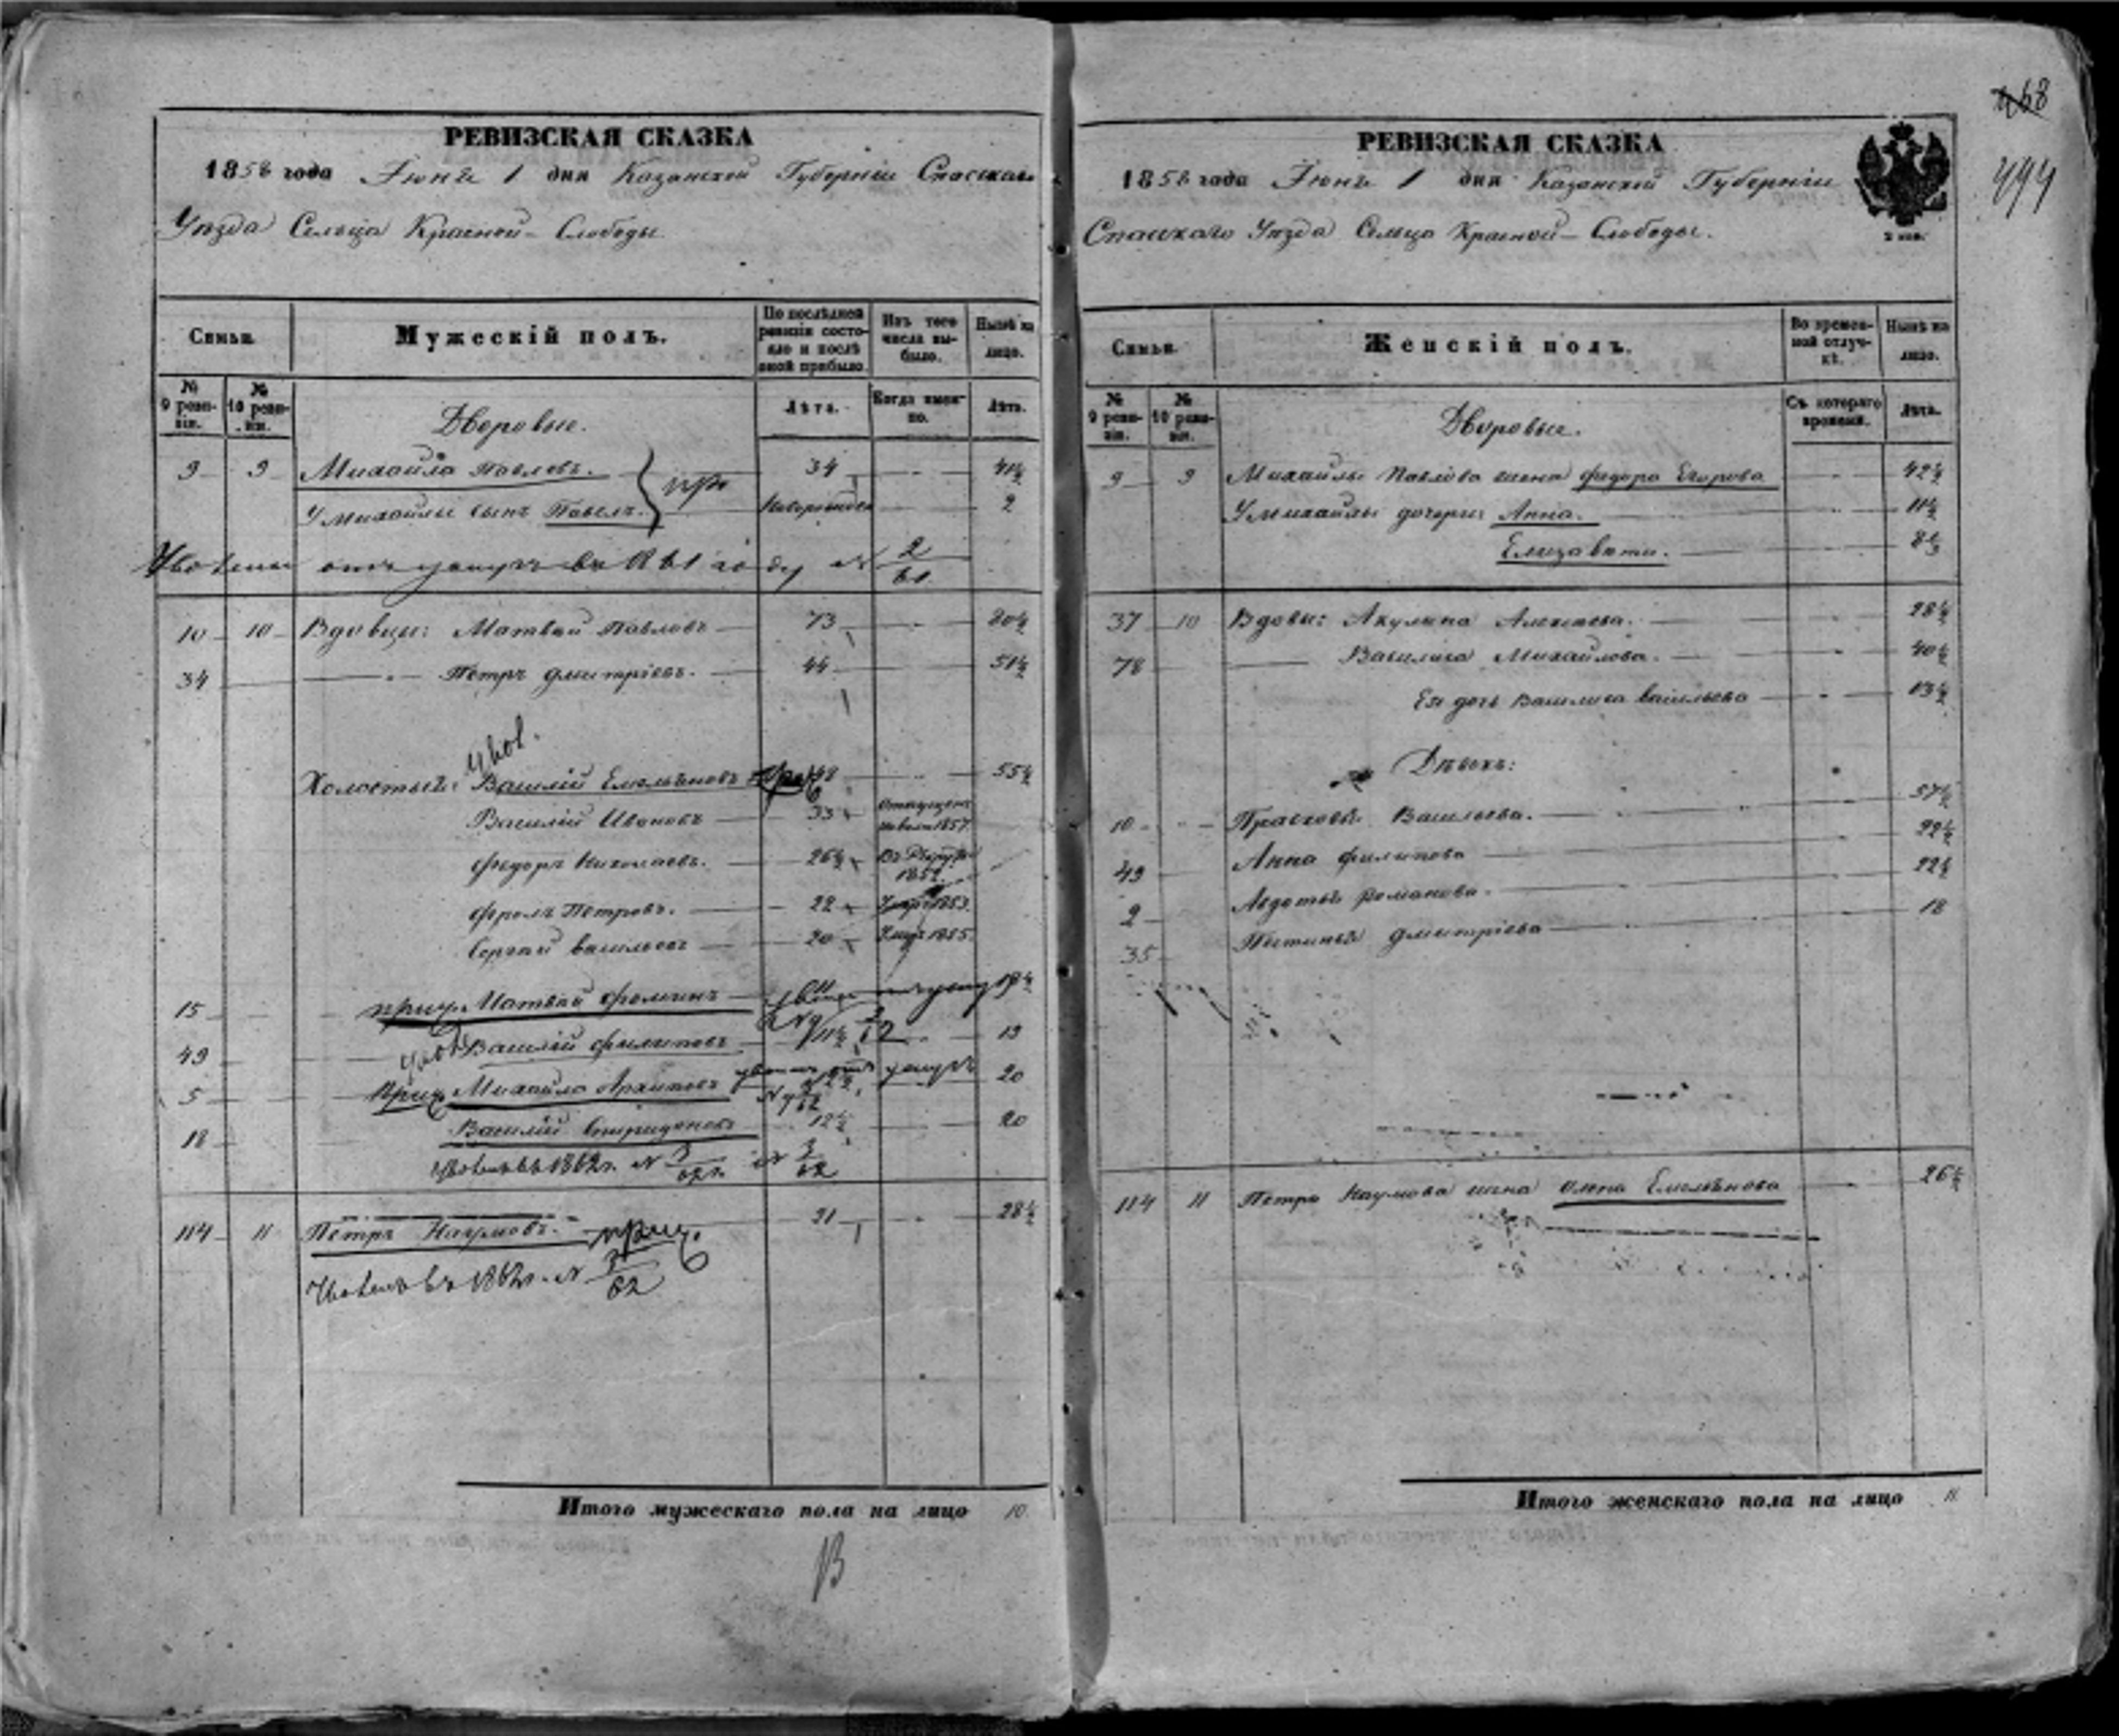 РЕВИЗСКАЯ СКАЗКА
1858 года Іюня 1 дня Казанской Губерніи Спасскаго
Уѣзда Сельца Красной-Слободы
Семьи. Мужескій полъ. По послѣдней ревизіи состояло и послѣ оной прибыло. Изъ того числа выбыло. Нынѣ на лицо.
№ 9 ревизіи. № 10 ревизіи. Дворовые. Лѣта. Когда именно. Лѣта.
9 9 Михайла Павловъ. 34 41½
У Михайлы сынъ Павелъ. новорожден 2
въ 1861 году № 2/61
10 10 Вдовцы: Матвей Павловъ 73 80½
34 Петръ Дмитріевъ. 44 51½
увол.
Холостыхъ: Василій Емельяновъ 48 55½
Василій Ивановъ 33 Отпущенъ на волю 1857.
Федоръ Николаевъ. 26½ Въ рекруты 1852
Фролъ Петровъ. 22 Умеръ 1853.
Сергей Васильевъ 20 Умеръ 1855.
15 Матвей Фоминъ
49 Василій Филиповъ 11½ 19
5 Михайла Архиповъ 20
18 Василій Спиридоновъ 12½ 20
въ 1862 г. № 3/62 г. № 3/62
114 11 Петръ Наумовъ. 21 28½
въ 1862 г. № 3/62
Итого мужескаго пола на лицо 10.
В
468
494
РЕВИЗСКАЯ СКАЗКА
1858 года Іюня 1 дня Казанской Губерніи
Спасскаго Уѣзда Сельца Красной-Слободы.
Семьи. Женскій полъ. Во временной отлучкѣ. Нынѣ на лицо.
№ 9 ревизіи. № 10 ревизіи. Дворовые. Съ котораго времени. Лѣта.
9 9 Михайлы Павлова жена Федора Егорова 42½
У Михайлы дочери: Анна. 11½
Елизавета.
37 10 Вдовы: Акулина Алексеева. 28½
78 Василиса Михайлова. 40½
Ея дочь Василиса Васильева 13½
Дѣвокъ:
10 Прасковья Васильева. 57½
49 Анна Филипова 22½
2 Авдотья Романова. 22½
35 Устинья Дмитріева 18
114 11 Петра Наумова жена Олена Емельянова 26½
Итого женскаго пола на лицо 11.